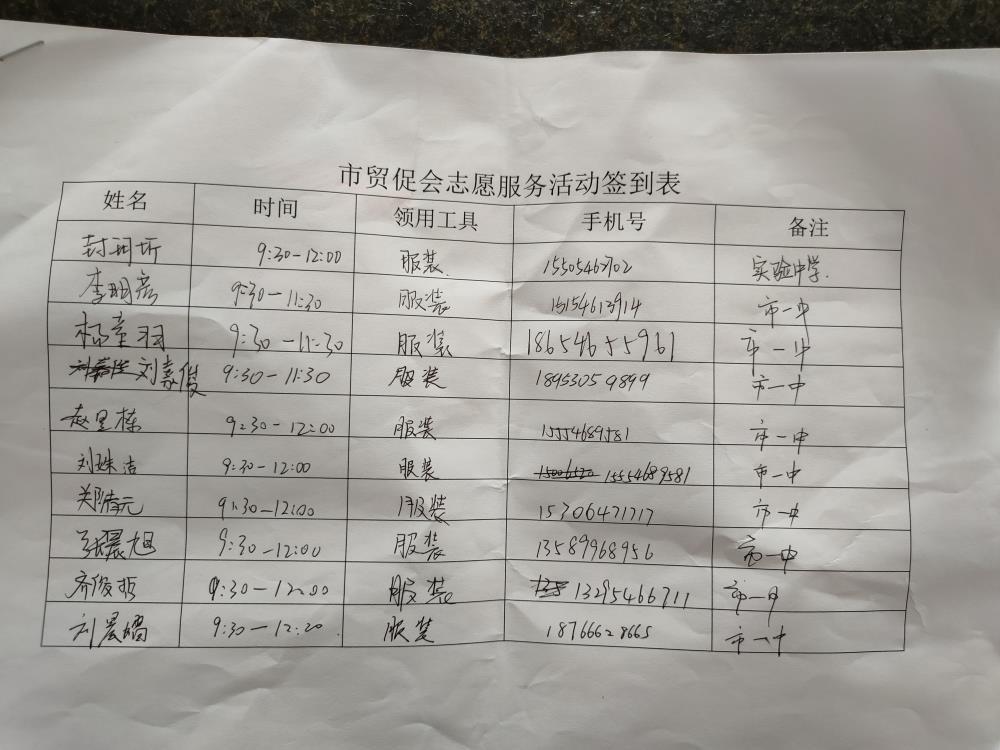 市贸促会志愿服务活动签到表
姓名 时间 领用工具 手机号 备注
封珂圻 9:30-12:00 服装 15505462702 实验中学.
李明彦 9:30-11:30 服装 15154613914 市一中
杨童羽 9:30-11:30 服装 18654655961 市一中
刘嘉俊 9:30-11:30 服装 18953059899 市一中
赵里栋 9:30-12:00 服装 15554689581 市一中
刘姝洁 9:30-12:00 服装 15554689581 市一中
9:30-12:00 服装 15306471717 市一中
9:30-12:00 服装 13589968956 市一中
齐俊哲 9:30-12:00 服装 13295466711 市一中
刘晨熠 9:30-12:20 服装 18766628665 市一中